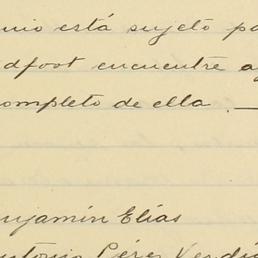 nio está sujeto pa
dfoot encuentre a
completo de ella. —
njamín Elías
ntonio Pérez Verdí